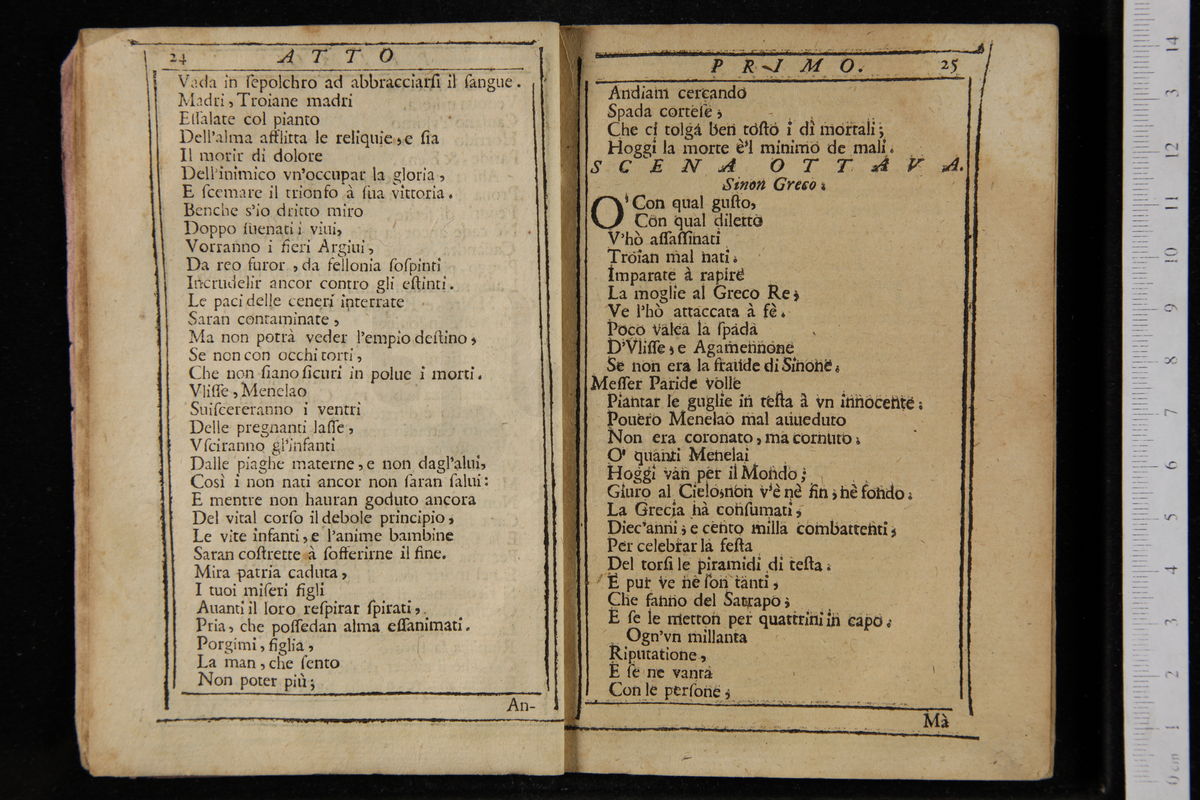 24 ATTO
Vada in ſepolchro ad abbracciarſi il ſangue.
Madri, Troiane madri
Eſſalate col pianto
Dell'alma afflitta le reliquie, e ſia
Il morir di dolore
Dell'inimico vn'occupar la gloria,
E ſcemare il trionfo à ſua vittoria.
Benche s'io dritto miro
Doppo ſuenati i viui,
Vorranno i fieri Argiui,
Da reo furor, da fellonia ſoſpinti
Incrudelir ancor contro gli eſtinti.
Le paci delle ceneri interrate
Saran contaminate,
Ma non potrà veder l'empio deſtino,
Se non con occhi torti,
Che non ſiano ſicuri in polue i morti.
Vliſſe, Menelao
Suiſcereranno i ventri
Delle pregnanti laſſe,
Vſciranno gl'infanti
Dalle piaghe materne, e non dagl'alui,
Così i non nati ancor non ſaran ſalui:
E mentre non hauran goduto ancora
Del vital corſo il debole principio,
Le vite infanti, e l'anime bambine
Saran coſtrette à ſofferirne il fine.
Mira patria caduta,
I tuoi miſeri figli
Auanti il loro reſpirar ſpirati,
Pria, che poſſedan alma eſſanimati.
Porgimi, figlia,
La man, che ſento
Non poter più;
An-
PRIMO. 25
Andiam cercando
Spada corteſe,
Che ci tolga ben toſto i dì mortali;
Hoggi la morte è'l minimo de mali.
SCENA OTTAVA.
Sinon Greco.
O' Con qual guſto,
Con qual diletto
V'hò aſſaſſinati
Troian mal nati.
Imparate à rapire
La moglie al Greco Re,
Ve l'hò attaccata à fè.
Poco valea la ſpada
D'Vliſſe, e Agamennone
Se non era la fraude di Sinone.
Meſſer Paride volle
Piantar le guglie in teſta à vn innocente.
Pouero Menelao mal auueduto
Non era coronato, ma cornuto.
O' quanti Menelai
Hoggi van per il Mondo;
Giuro al Cielo, non v'è nè fin, nè fondo.
La Grecia hà conſumati,
Diec'anni, e cento milla combattenti,
Per celebrar la feſta
Del torſi le piramidi di teſta.
E pur ve ne ſon tanti,
Che fanno del Satrapo;
E ſe le metton per quattrini in capo.
Ogn'vn millanta
Riputatione,
E ſe ne vanta
Con le perſone,
Mà
14
13
12
11
10
9
8
7
6
5
4
3
2
1
0 cm